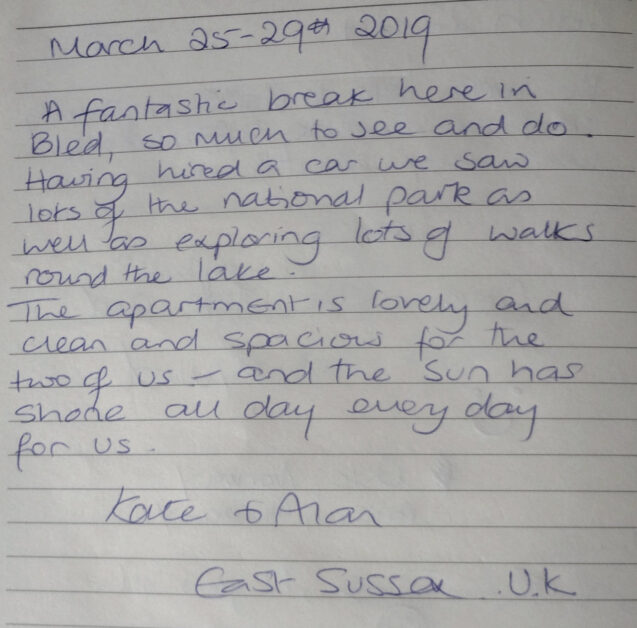 March 25-29th 2019
A fantastic break here in
Bled, so much to see and do.
Having hired a car we saw
lots of the national park as
well as exploring lots of walks
round the lake.
The apartment is lovely and
clean and spacious for the
two of us - and the sun has
shone all day every day
for us.
Kate & Alan
East Sussex. U.K